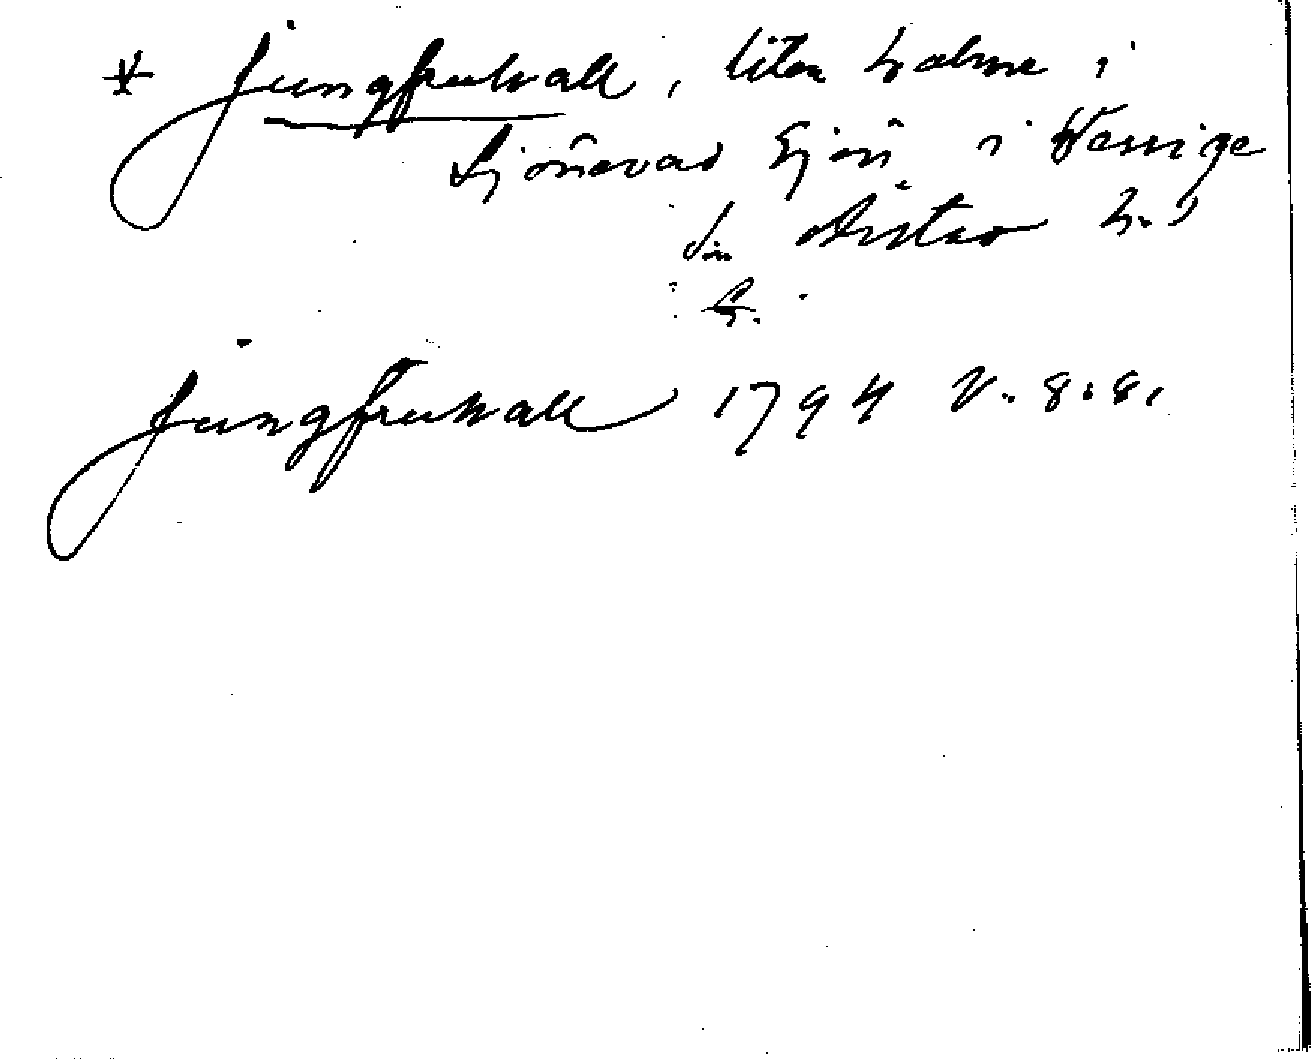 * Jungfruhall, liten holme i
Sjönevad Sjön i Wessige
sn Årstad h.d
G.
Jungfruhall 1794 V. 8:8.